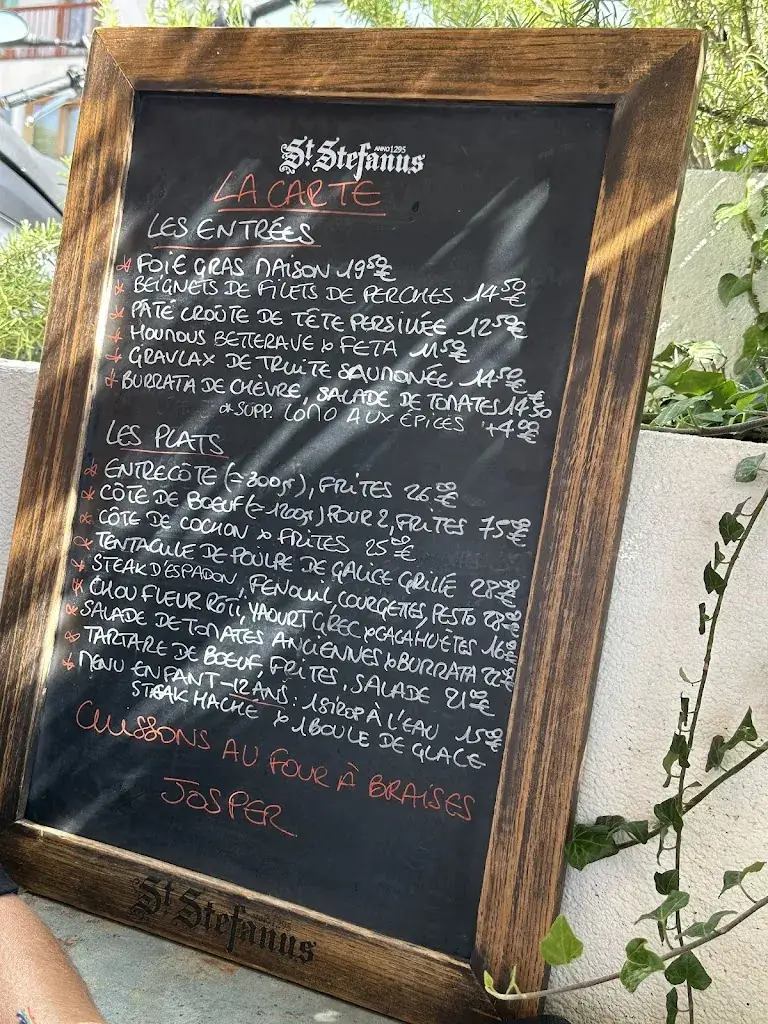 St Stefanus
ANNO 1295
LA CARTE
LES ENTRÉES
* FOIE GRAS MAISON 19⁵⁰€
* BEIGNETS DE FILETS DE PERCHES 14⁵⁰€
* PÂTÉ CROÛTE DE TÊTE PERSILLÉE 12⁵⁰€
* HOUMOUS BETTERAVE & FETA 11⁵⁰€
* GRAVLAX DE TRUITE SAUMONÉE 14⁵⁰€
* BURRATA DE CHÈVRE, SALADE DE TOMATES 14€50
* SUPP. LOMO AUX ÉPICES +4⁰⁰€
LES PLATS
* ENTRECÔTE (≃300gr), FRITES 26⁵⁰€
* CÔTE DE BOEUF (≃1200gr) POUR 2, FRITES 75⁰⁰€
* CÔTE DE COCHON & FRITES 25⁰⁰€
* TENTACULE DE POULPE DE GALICE GRILLÉ 28⁵⁰€
* STEAK D'ESPADON, FENOUIL, COURGETTES, PESTO 28⁰⁰€
* CHOU FLEUR RÔTI, YAOURT GREC & CACAHUÈTES 16⁰⁰€
* SALADE DE TOMATES ANCIENNES & BURRATA 22⁰⁰€
* TARTARE DE BOEUF, FRITES, SALADE 21⁰⁰€
* MENU ENFANT -12 ANS : 1 SIROP À L'EAU 15⁰⁰€
STEAK HACHÉ & 1 BOULE DE GLACE
CUISSONS AU FOUR À BRAISES
JOSPER
St Stefanus
ANNO 1295